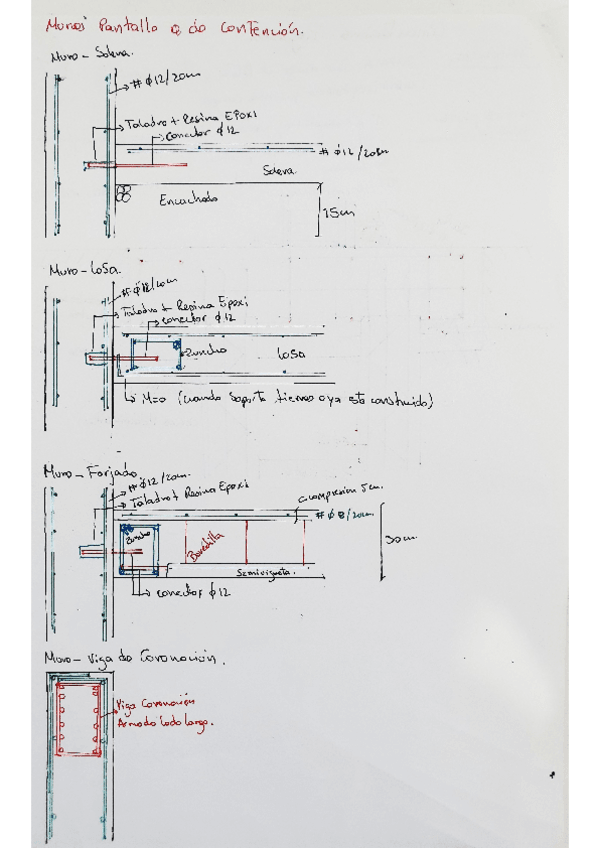 Muros Pantalla o de Contención.
Muro - Solera.
# Φ12/20cm
Taladro + Resina EPoxi
conector Φ12
# Φ12/20cm
Solera
Encachado
15cm
Muro - Losa.
# Φ12/20cm
Taladro + Resina Epoxi
conector Φ12
Zuncho
Losa
M=0 (cuando soporta tierras o ya esta construido)
Muro - Forjado
# Φ12/20cm
Taladro + Resina Epoxi
compresion 5cm.
# Φ8/20cm
Zuncho
Bovedilla
30cm
Semivigueta.
conector Φ12
Muro - Viga de Coronación.
Viga Coronación
Armado lado largo.